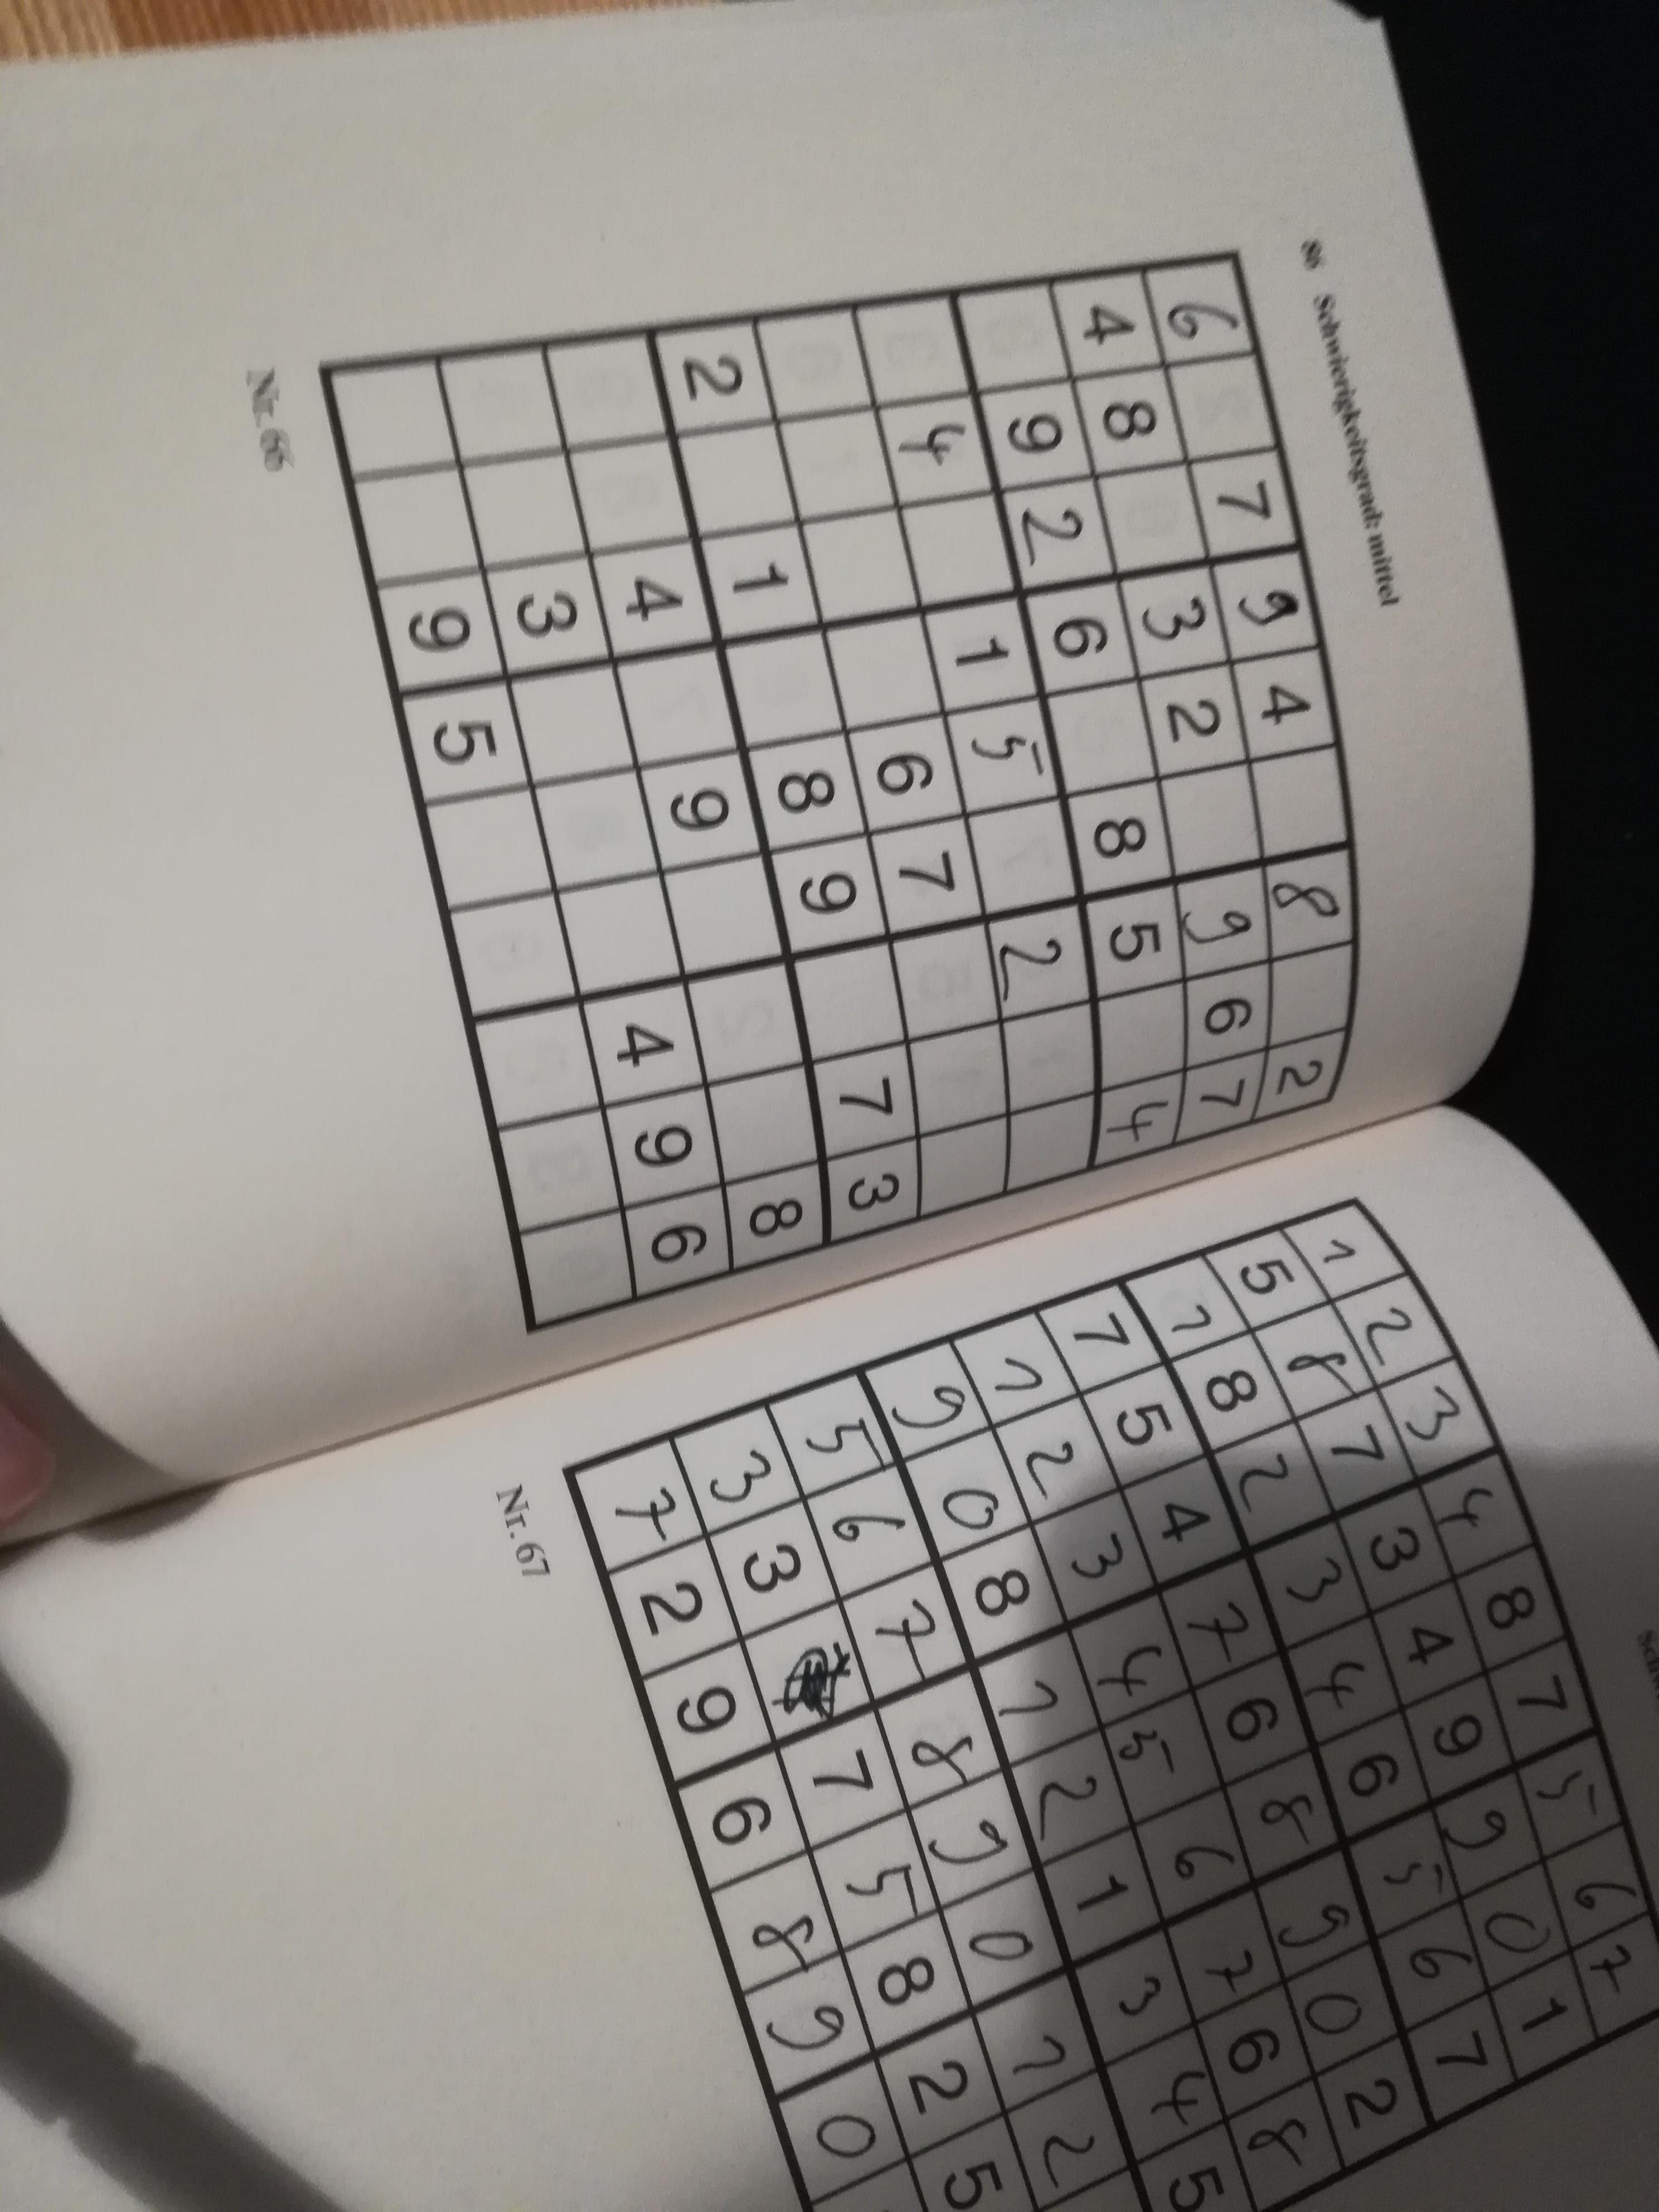 86 Schwierigkeitsgrad: mittel
6 7 9 4 8 2
4 8 3 2 9 6 7
9 2 6 8 5 4
4 1 5 2
6 7
2 1 8 9 7 3
4 9 8
3 4 9 6
9 5
Nr. 66
1 2 3 4 8 7 5 6 7
5 8 7 3 4 9 9 0 1
1 8 2 3 4 6 5 6 7
7 5 4 7 6 8 9 0 2
1 2 3 4 5 6 7 6 8
9 0 8 1 2 1 3 4 5
5 6 7 8 9 0 1 2
3 3 7 5 8 2 5
7 2 9 6 8 9 0
Nr. 67